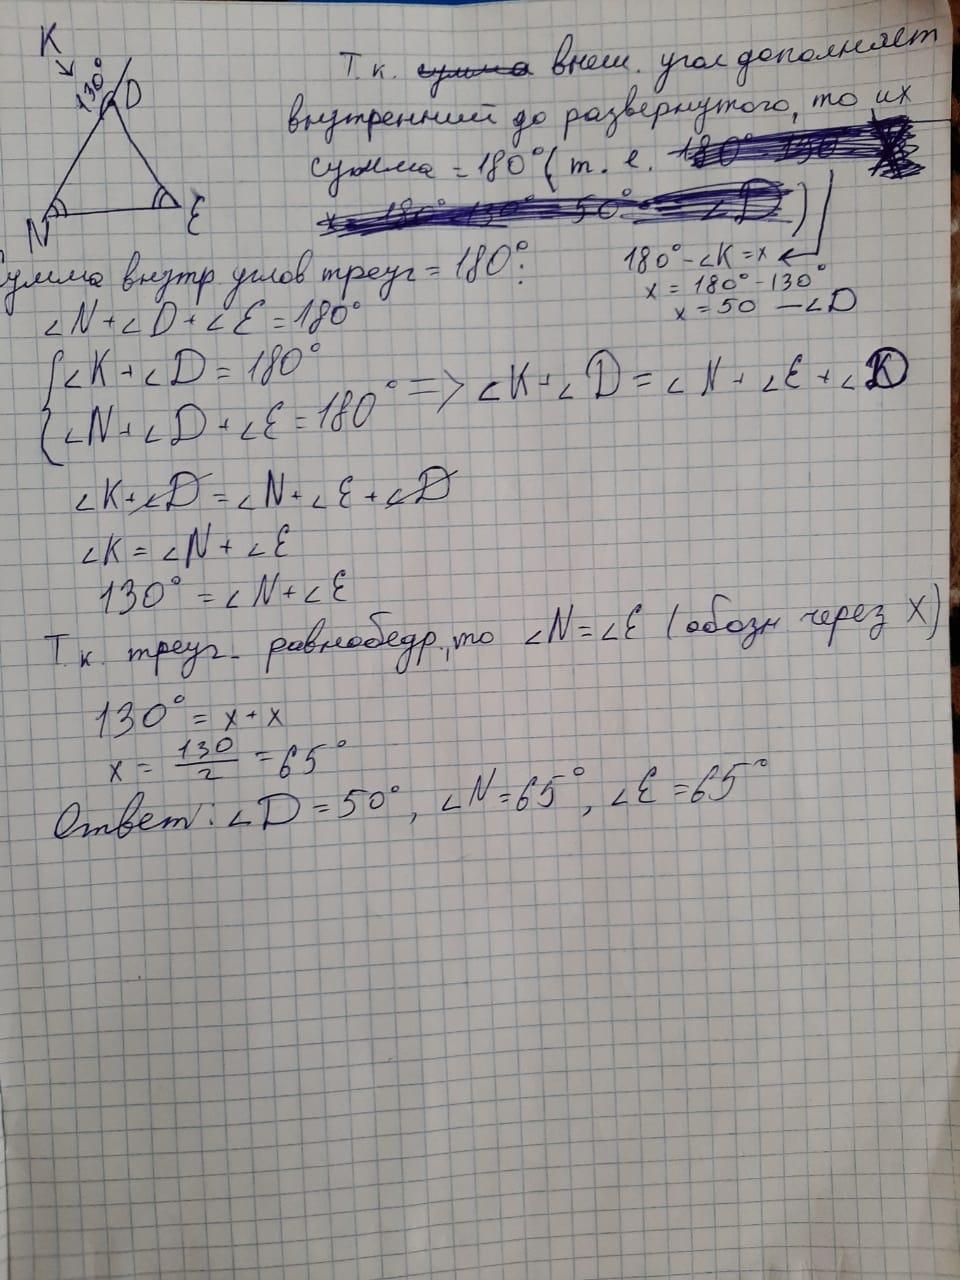 K
130°
D
N
E
Т.к. сумма внеш. угол дополняет
внутренний до развернутого, то их
сумма = 180° (т. е. 180° 130°
x = 180° 130° 50° ∠D)
180° - ∠K = x
x = 180° - 130°
x = 50 — ∠D
Сумма внутр углов треуг = 180°:
∠N + ∠D + ∠E = 180°
{ ∠K + ∠D = 180°
∠N + ∠D + ∠E = 180° => ∠K + ∠D = ∠N + ∠E + ∠D
∠K + ∠D = ∠N + ∠E + ∠D
∠K = ∠N + ∠E
130° = ∠N + ∠E
Т.к. треуг. равнобедр., то ∠N = ∠E (обозн через x)
130° = x + x
x = 130/2 = 65°
Ответ: ∠D = 50°, ∠N = 65°, ∠E = 65°